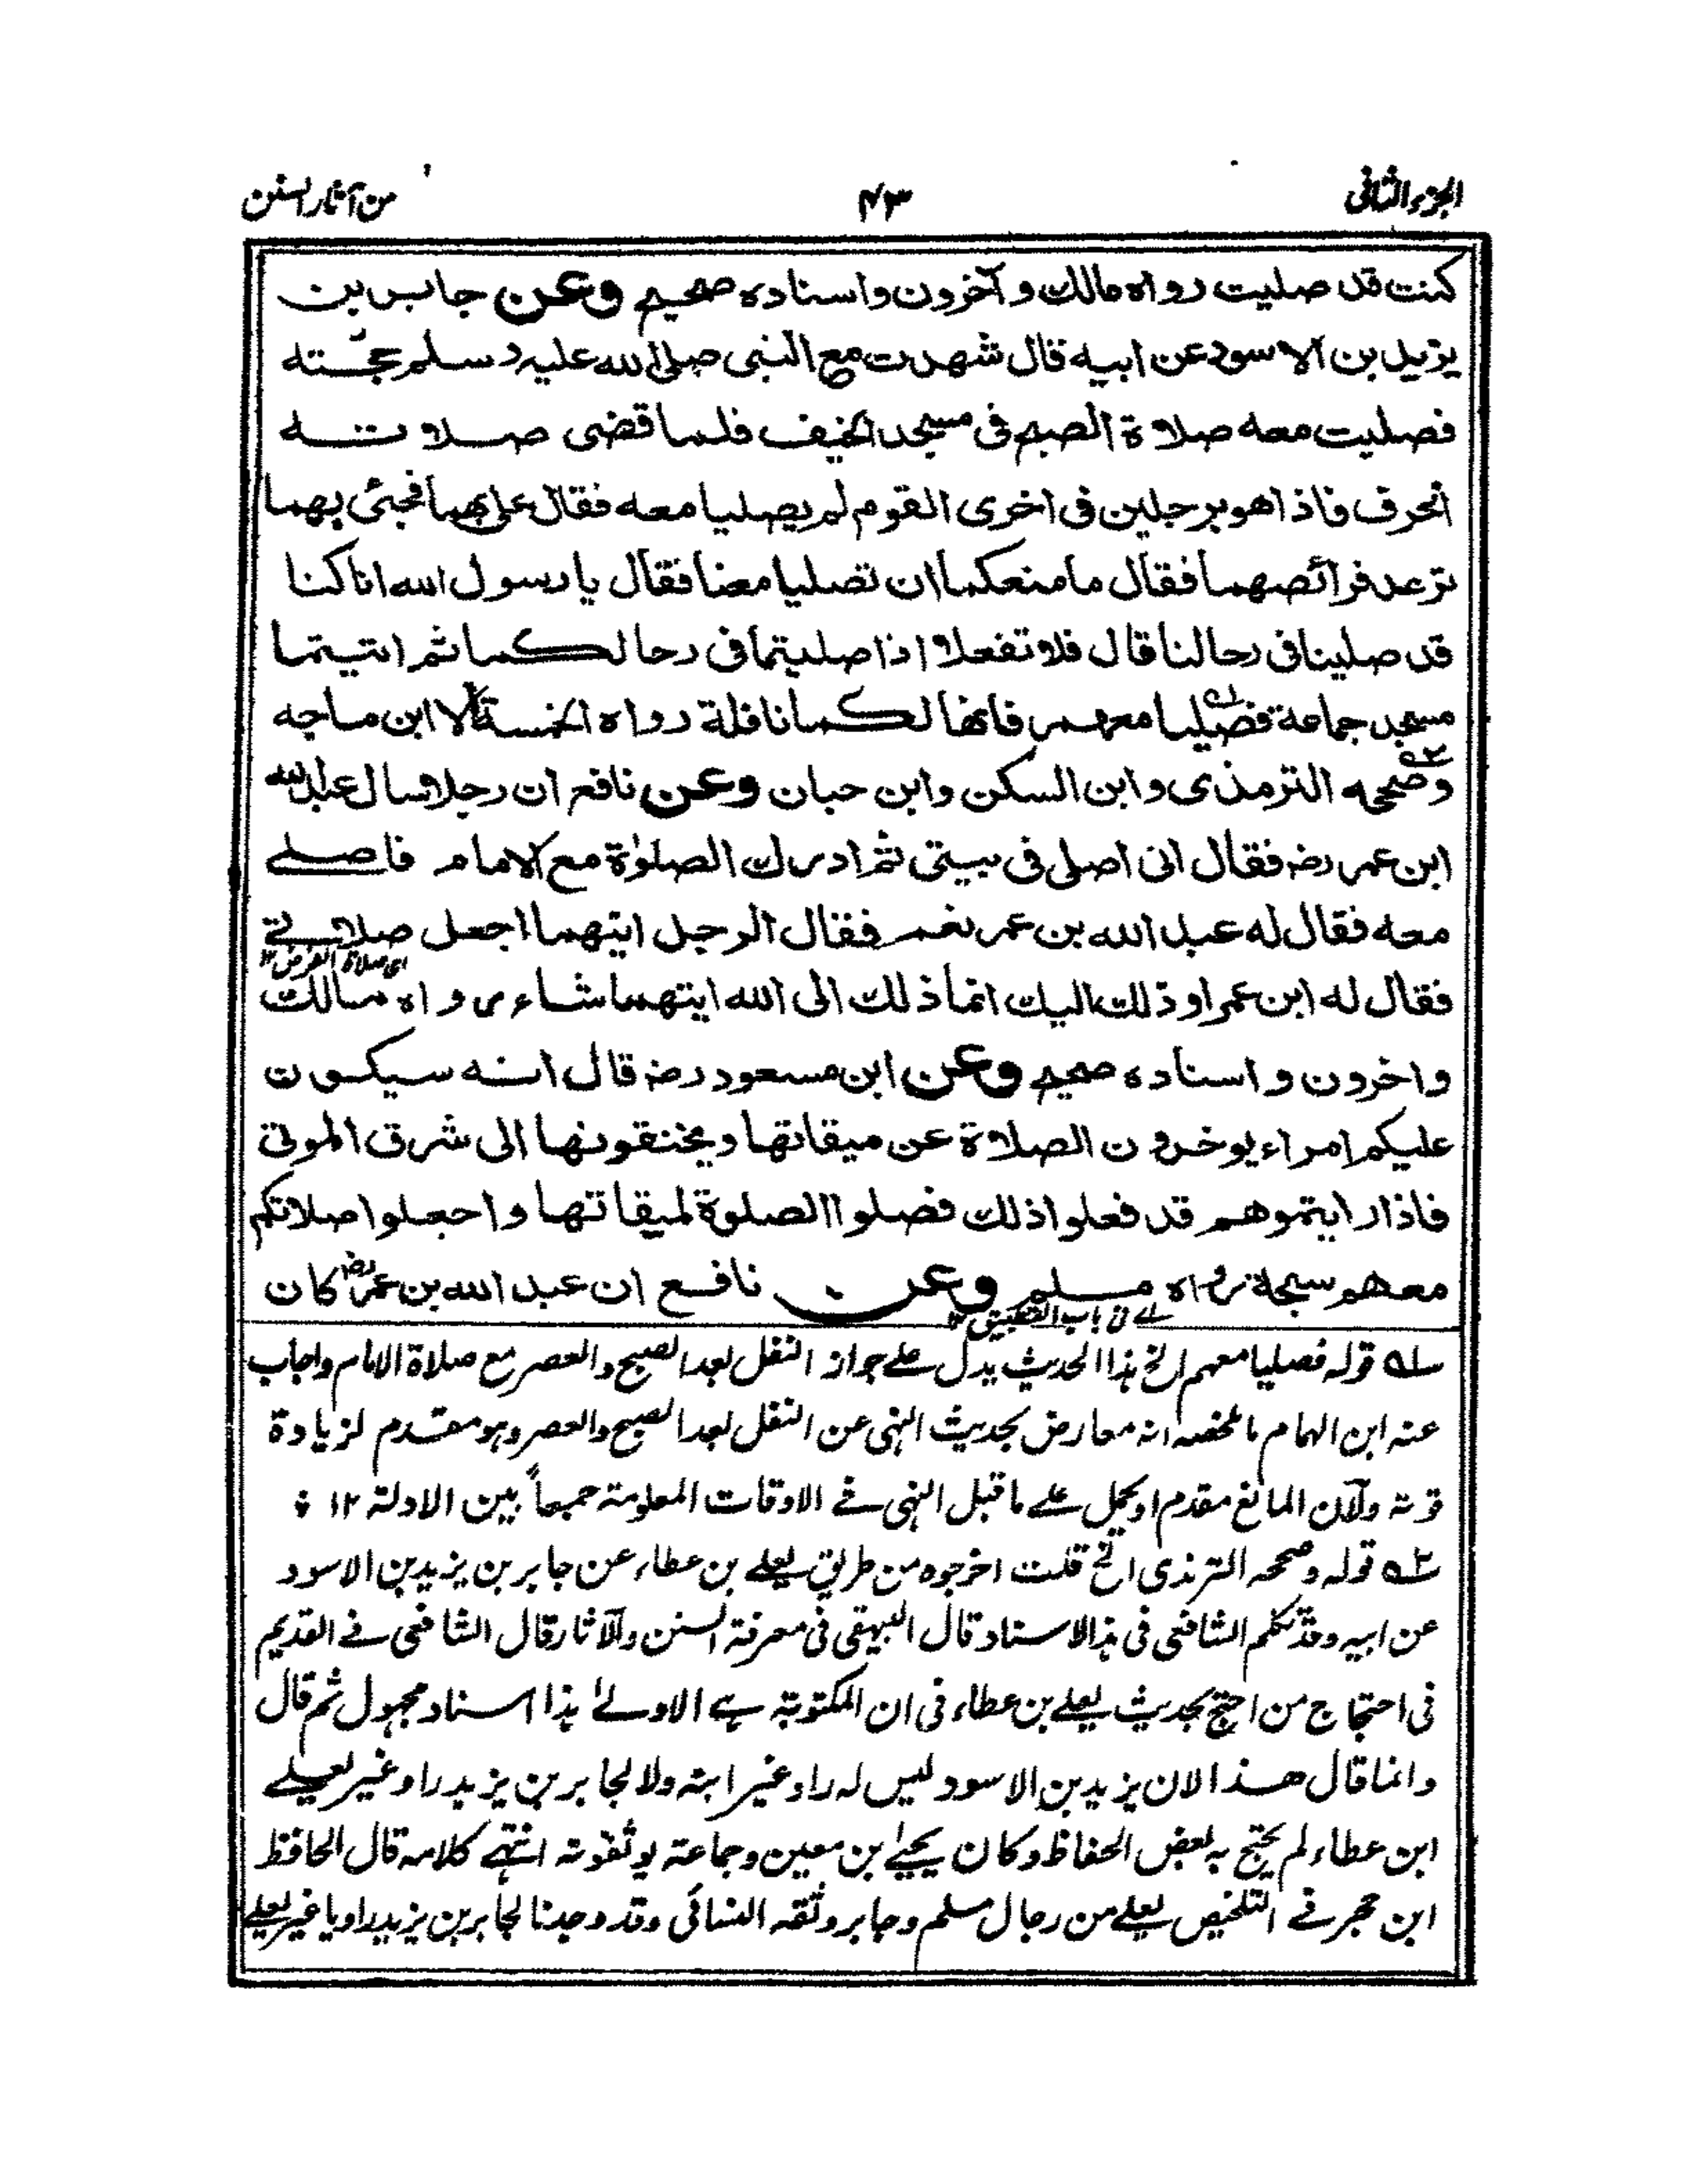 الجزء الثانى ۴۳ من آثار السنن
كنت قد صليت رواه مالك و آخرون واسناده صحيح وعن جابر بن
يزيد بن الاسود عن ابيه قال شهدت مع النبى صلى الله عليه وسلم حجّته
فصليت معه صلاة الصبح فى مسجد الخيف فلما قضى صلاته
انحرف فاذا هو برجلين فى اخرى القوم لم يصليا معه فقال على بهما فجئى بهما
ترعد فرائصهما فقال ما منعكما ان تصليا معنا فقال يا رسول الله انا كنا
قد صلينا فى رحالنا قال فلا تفعلا اذا صليتما فى رحالكما ثم اتيتما
مسجد جماعة فصليا معهم فانها لكما نافلة رواه الخمسة الا ابن ماجه
وصححه الترمذى وابن السكن وابن حبان وعن نافع ان رجلا سال عبد الله
ابن عمر رضـ فقال انى اصلى فى بيتى ثم ادرك الصلوٰة مع الامام فاصلے
معه فقال له عبد الله بن عمر نعم فقال الرجل ايتهما اجعل صلاتے
اى صلاة الفرض ۱۲
فقال له ابن عمر او ذلك اليك انما ذلك الى الله ايتهما شاء رواه مالك
واخرون و اسناده صحيح وعن ابن مسعود رضـ قال انه سيكون
عليكم امراء يوخرون الصلاة عن ميقاتها ويخنقونها الى شرق الموتى
فاذا رايتموهم قد فعلوا ذلك فصلوا الصلوة لميقاتها واجعلوا صلاتكم
معهم سبحة رواه مسلم وعن نافع ان عبد الله بن عمر رضـ كان
لے فى باب التطبيق ۱۲
سلـه قوله فصليا معهم الخ هذا الحديث يدل علے جواز النفل بعد الصبح والعصر مع صلاة الامام واجاب
عنه ابن الهمام ما ملخصه انه معارض بحديث النهى عن النفل بعد الصبح والعصر وهو مقدم لزيادة
قوته ولأن المانع مقدم او يحمل علے ما قبل النهى فے الاوقات المعلومة جمعاً بين الادلة ۱۲
۲ـه قوله وصححه الترمذى الخ قلت اخرجوه من طريق يعلے بن عطاء عن جابر بن يزيد بن الاسود
عن ابيه وقد تكلم الشافعى فى هذا الاسناد قال البيهقى فى معرفة السنن والآثار قال الشافعى فے القديم
فى احتجاج من احتج بحديث يعلے بن عطاء فى ان المكتوبة هے الاولےٰ هذا اسناد مجهول ثم قال
وانما قال هذا لان يزيد بن الاسود ليس له راو غير ابنه ولا لجابر بن يزيد راو غير يعلے
ابن عطاء لم يحتج به بعض الحفاظ وكان يحيےٰ بن معين وجماعة يوثقونه انتهے كلامه قال الحافظ
ابن حجر فے التلخيص يعلے من رجال مسلم وجابر وثقه النسائى وقد وجدنا لجابر بن يزيد راويا غير يعلے